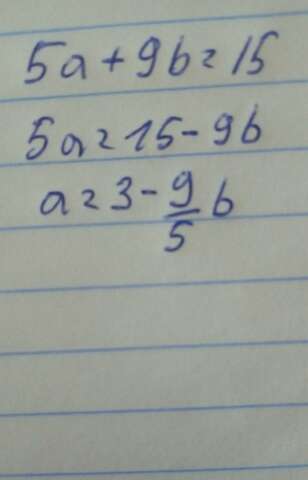 5a + 9b = 15
5a = 15 - 9b
a = 3 - \frac{9}{5} b